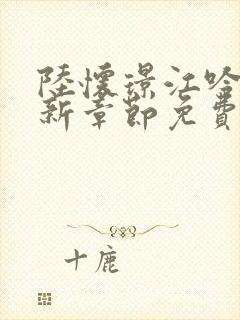 陸懷璟江吟
新章節免費
十鹿